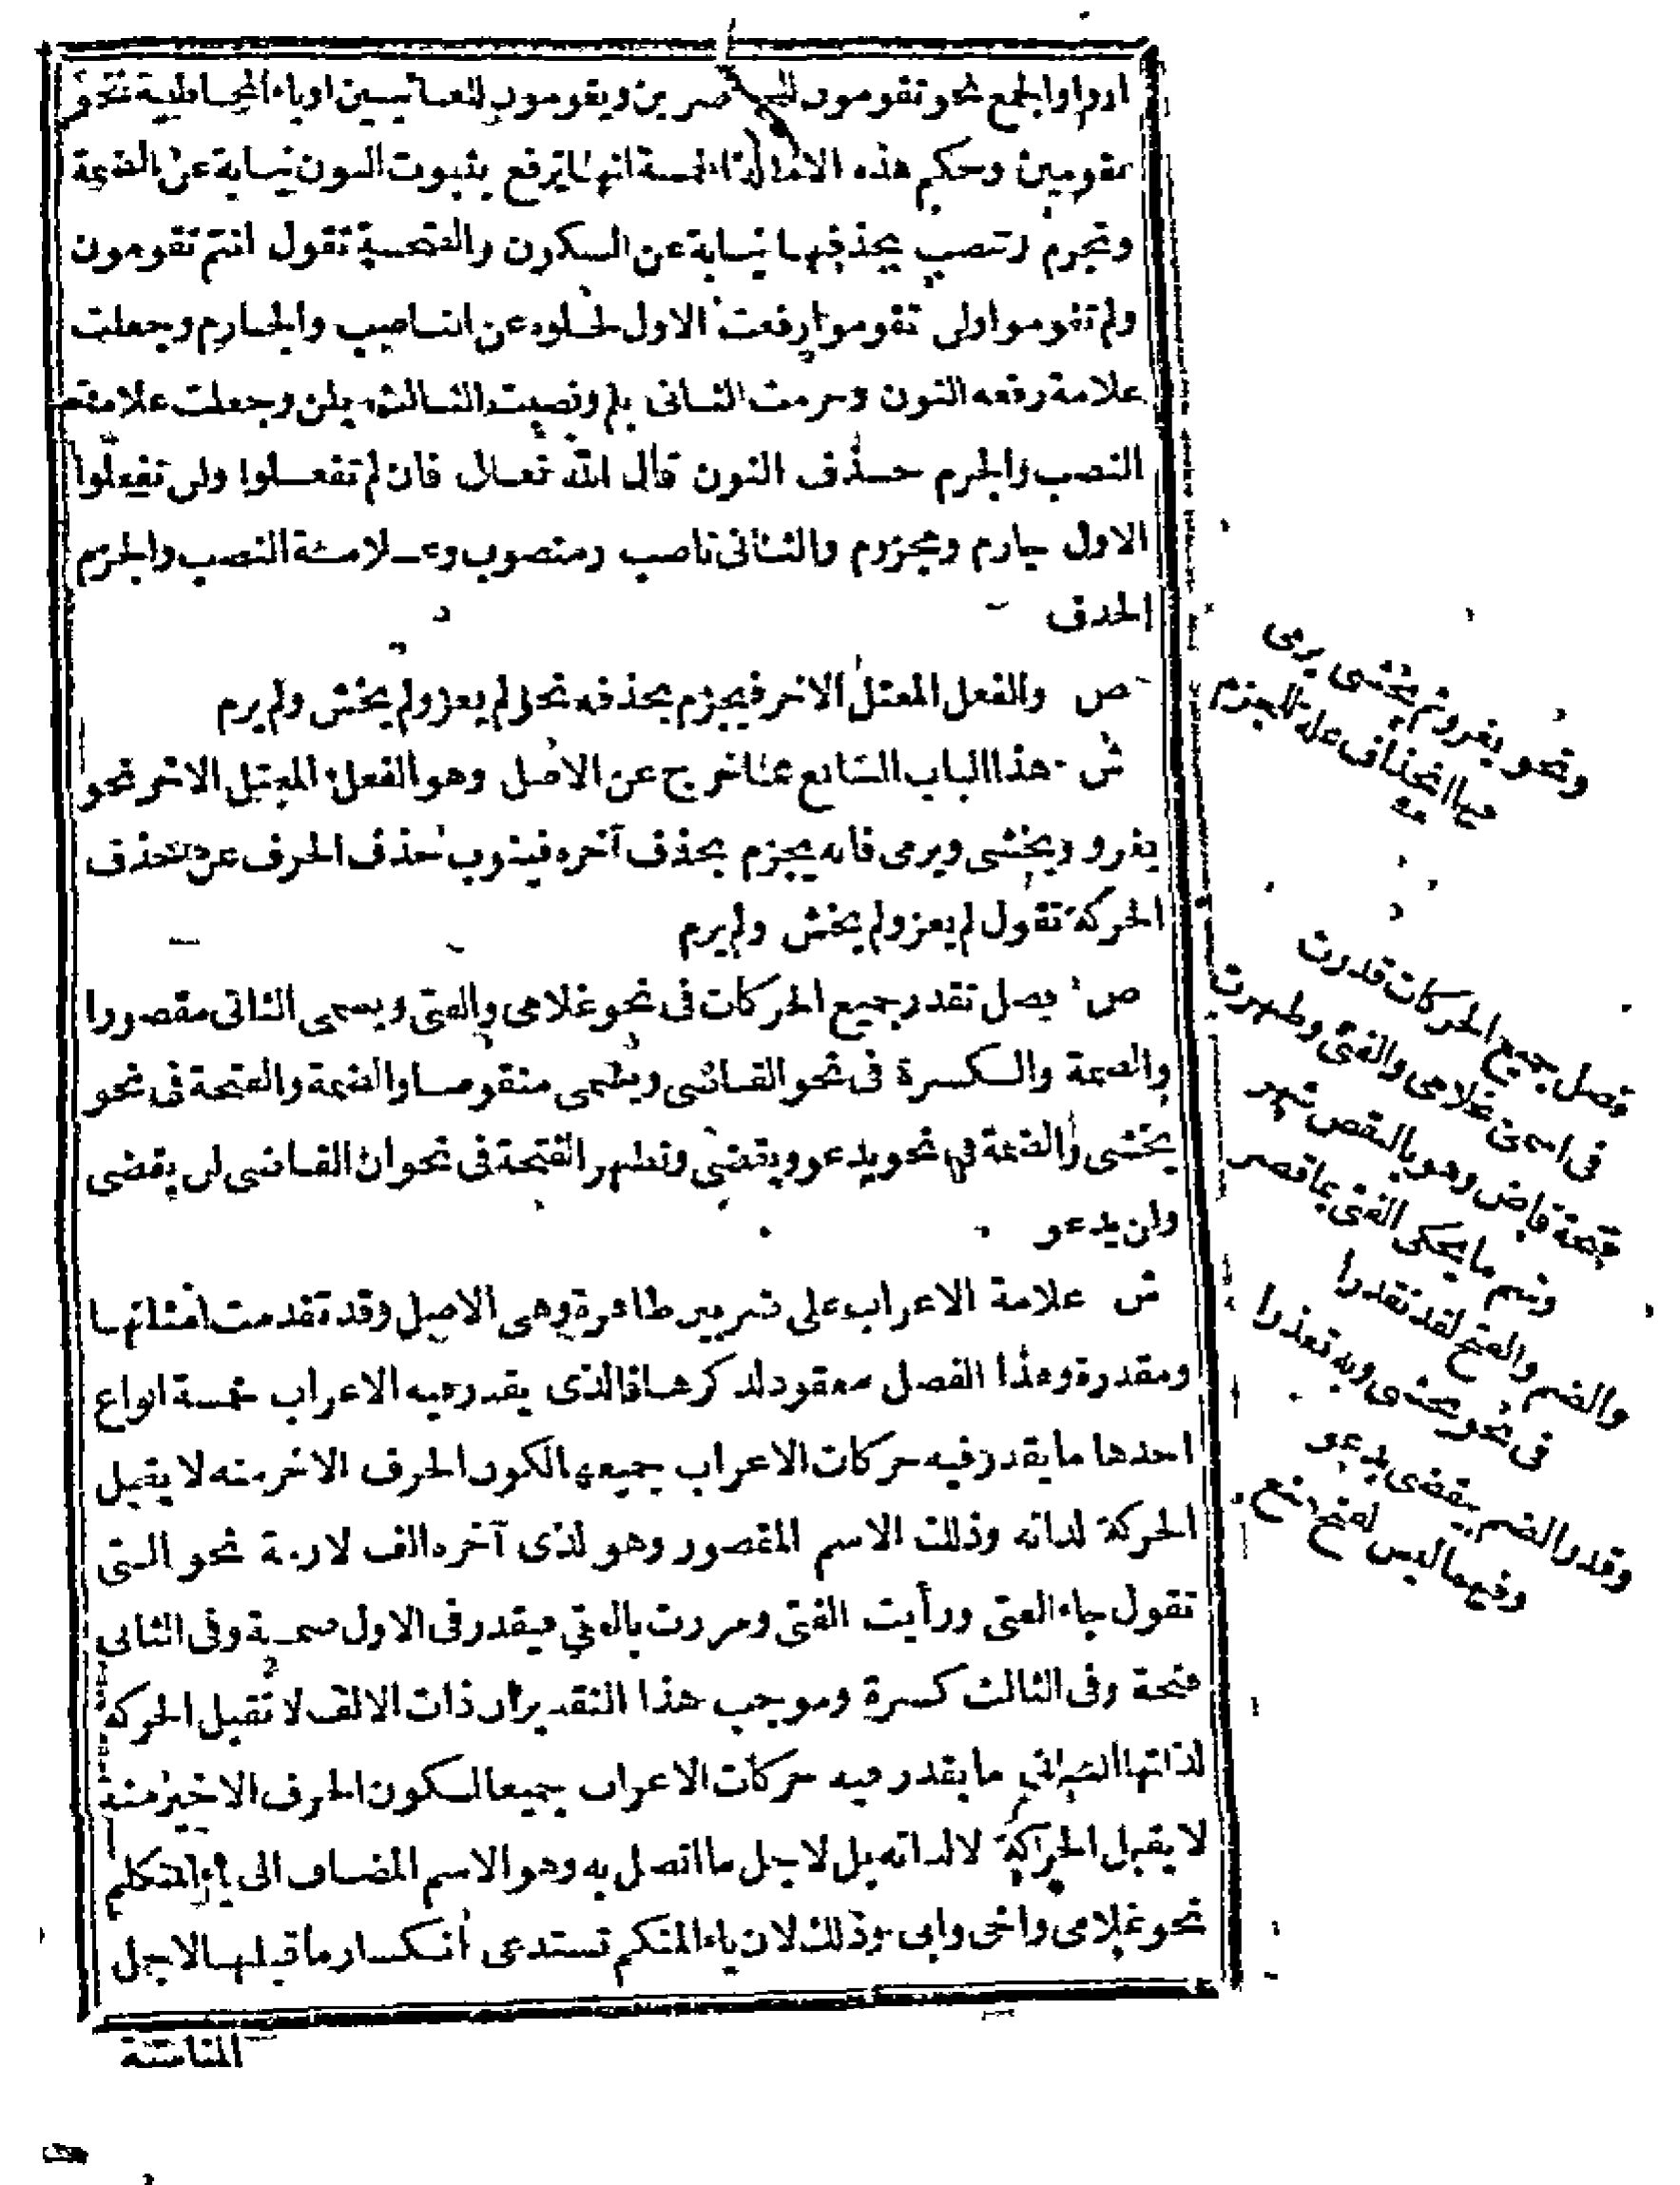 او واو الجمع نحو تقومون للحاضرين ويقومون للغائبين او ياء المخاطبة نحو
تقومين وحكم هذه الامثلة الخمسة انها ترفع بثبوت النون نيابة عن الضمة
وتجزم وتنصب بحذفها نيابة عن السكون والفتحة تقول انتم تقومون
ولم تقوموا ولن تقوموا رفعت الاول لخلوه عن الناصب والجازم وجعلت
علامة رفعه النون وجزمت الثانى بلم ونصبت الثالث بلن وجعلت علامة
النصب والجزم حذف النون قال الله تعالى فان لم تفعلوا ولن تفعلوا
الاول جازم ومجزوم والثانى ناصب ومنصوب وعلامة النصب والجزم
الحذف
ص والفعل المعتل الاخر فيجزم بحذفه نحو لم يغز ولم يخش ولم يرم
ش هذا الباب السابع مما خرج عن الاصل وهو الفعل المعتل الاخر نحو
يغزو ويخشى ويرمى فانه يجزم بحذف آخره فينوب حذف الحرف عن حذف
الحركة تقول لم يغز ولم يخش ولم يرم
ص فصل تقدر جميع الحركات فى نحو غلامى والفتى ويسمى الثانى مقصورا
والضمة والكسرة فى نحو القاضى ويسمى منقوصا والضمة والفتحة فى نحو
يخشى والضمة فى نحو يدعو ويقضى وتظهر الفتحة فى نحو ان القاضى لن يقضى
ولن يدعو
ش علامة الاعراب على ضربين ظاهرة وهى الاصل وقد تقدمت امثلتها
ومقدرة وهذا الفصل معقود لذكرها فالذى يقدر فيه الاعراب خمسة انواع
احدها ما يقدر فيه حركات الاعراب جميعها لكون الحرف الاخر منه لا يقبل
الحركة لذاته وذلك الاسم المقصور وهو الذى آخره الف لازمة نحو الفتى
تقول جاء الفتى ورأيت الفتى ومررت بالفتى فيقدر فى الاول ضمة وفى الثانى
فتحة وفى الثالث كسرة وموجب هذا التقدير ان ذات الالف لا تقبل الحركة
لذاتها الثانى ما يقدر فيه حركات الاعراب جميعا لكون الحرف الاخير منه
لا يقبل الحركة لا لذاته بل لاجل ما اتصل به وهو الاسم المضاف الى ياء المتكلم
نحو غلامى واخى وابى وذلك لان ياء المتكلم تستدعى انكسار ما قبلها لاجل
المناسبة
ونحو يغزو ثم يخشى يرمى
للجزم
فصل جميع الحركات قدرت
فى اسمى غلامى والفتى وظهرت
فتحة قاض وهو بالنقص شهر
وسم ما يحكى الفتى بما قصر
والضم والفتح لقد تقدرا
فى نحو يخشى وبه تعذرا
وقدر الضم بيقضى يدعو
وفيهما ليس لفتح منع